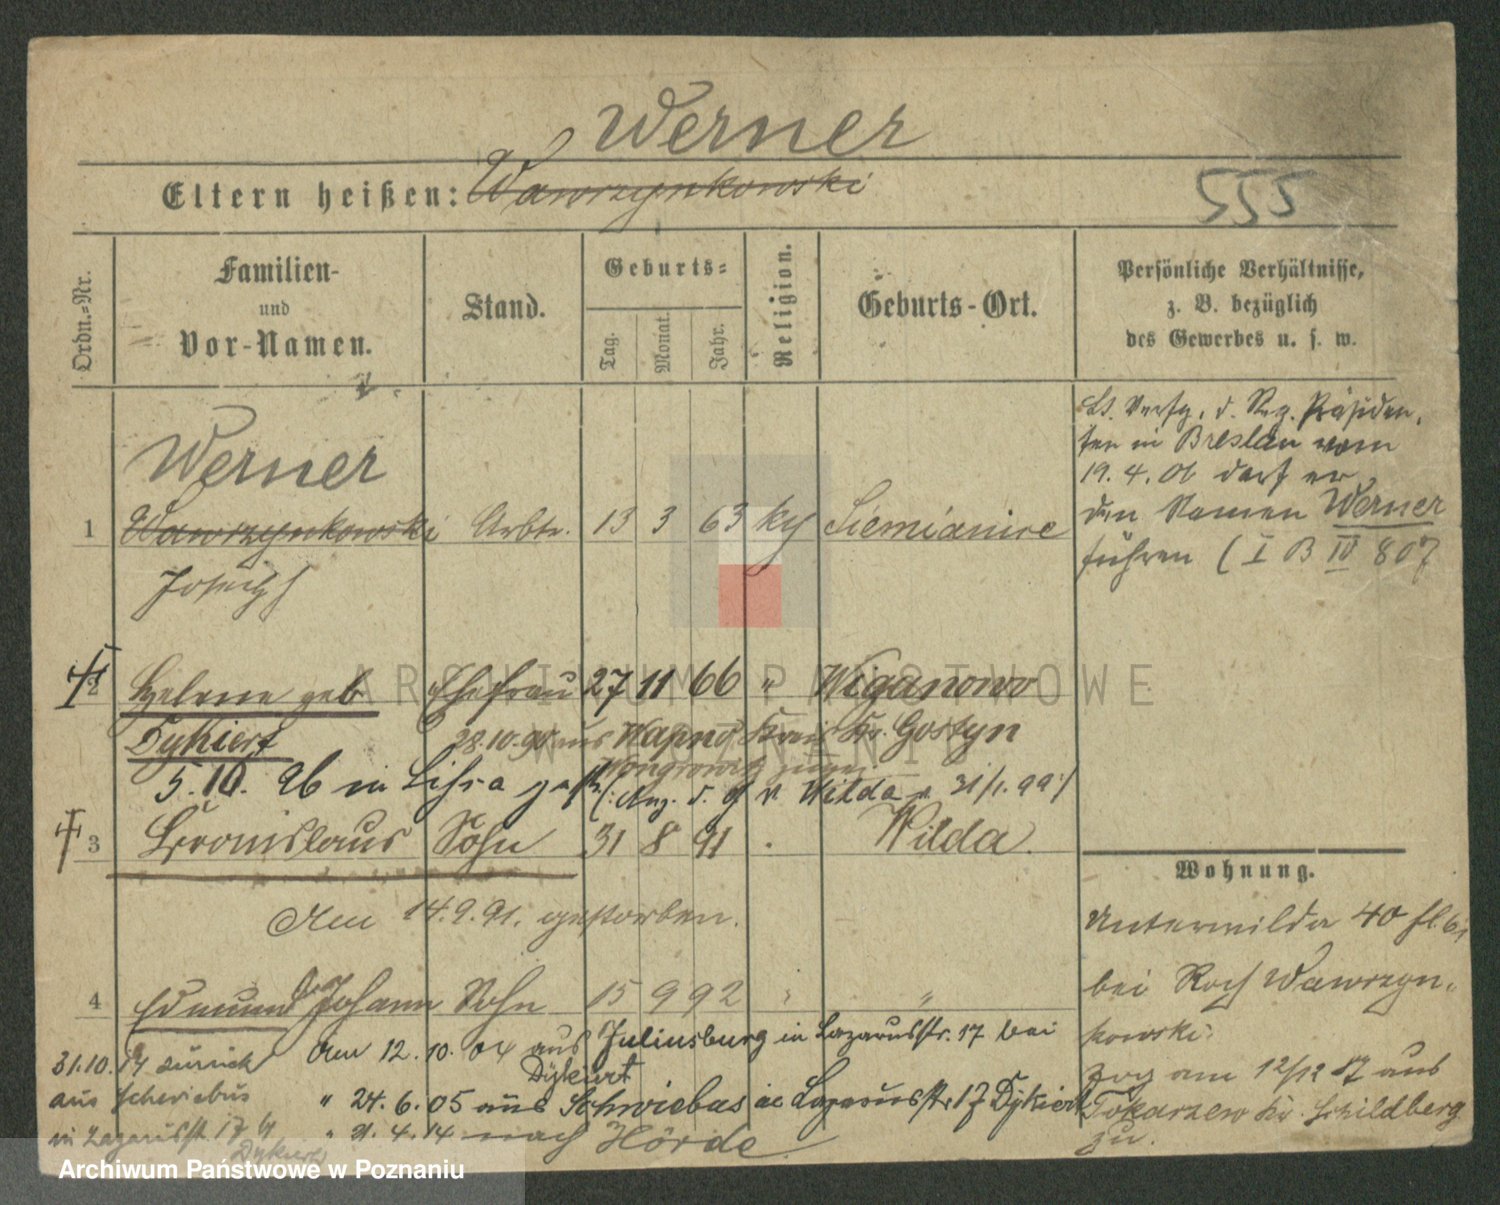 Werner
Eltern heißen: Wawrzynkowski
555
Ordn.-Nr.
Familien-
und
Vor-Namen.
Stand.
Geburts-
Tag.
Monat.
Jahr.
Religion.
Geburts-Ort.
Persönliche Verhältnisse,
z. B. bezüglich
des Gewerbes u. s. w.
Werner
1 Wawrzynkowski Arbtr. 13 3 63 kth Siemianice
Joseph
Lt. Verfg. d. Reg. Präsiden-
ten in Breslau vom
19. 4. 06 darf er
den Namen Werner
führen (I B IV 807
2 Helene geb Ehefrau 27 11 66 " Wiganowo
Dykiert 28.10.90 aus Wapno Kreis Kr. Gostyn
Wongrowitz
5. 10. 96 in Lissa gest. (: Anz. d. v. Wilda v. 31/1. 99 :)
3 Bronislaus Sohn 31 8 91 Wilda
Am 14. 9. 91. gestorben.
4 Edmund Johann Sohn 15 9 92 " "
Am 12. 10. 04 aus Juliusburg in Lazarusstr. 17 bei
Dykiert
" 24. 6. 05 aus Schwiebus in Lazarusstr. 17 Dykiert
" 21. 4. 14 nach Hörde
31.10.14 zurück
aus Schwiebus
in Lazarusstr 17 bei
Dykiert
Wohnung.
Unterwilda 40
bei Roch Wawrzyn-
kowski.
zog am 12/12 87 aus
Tokarzew Kr. Schildberg
zu.
ARCHIWUM PAŃSTWOWE
W POZNANIU
Archiwum Państwowe w Poznaniu